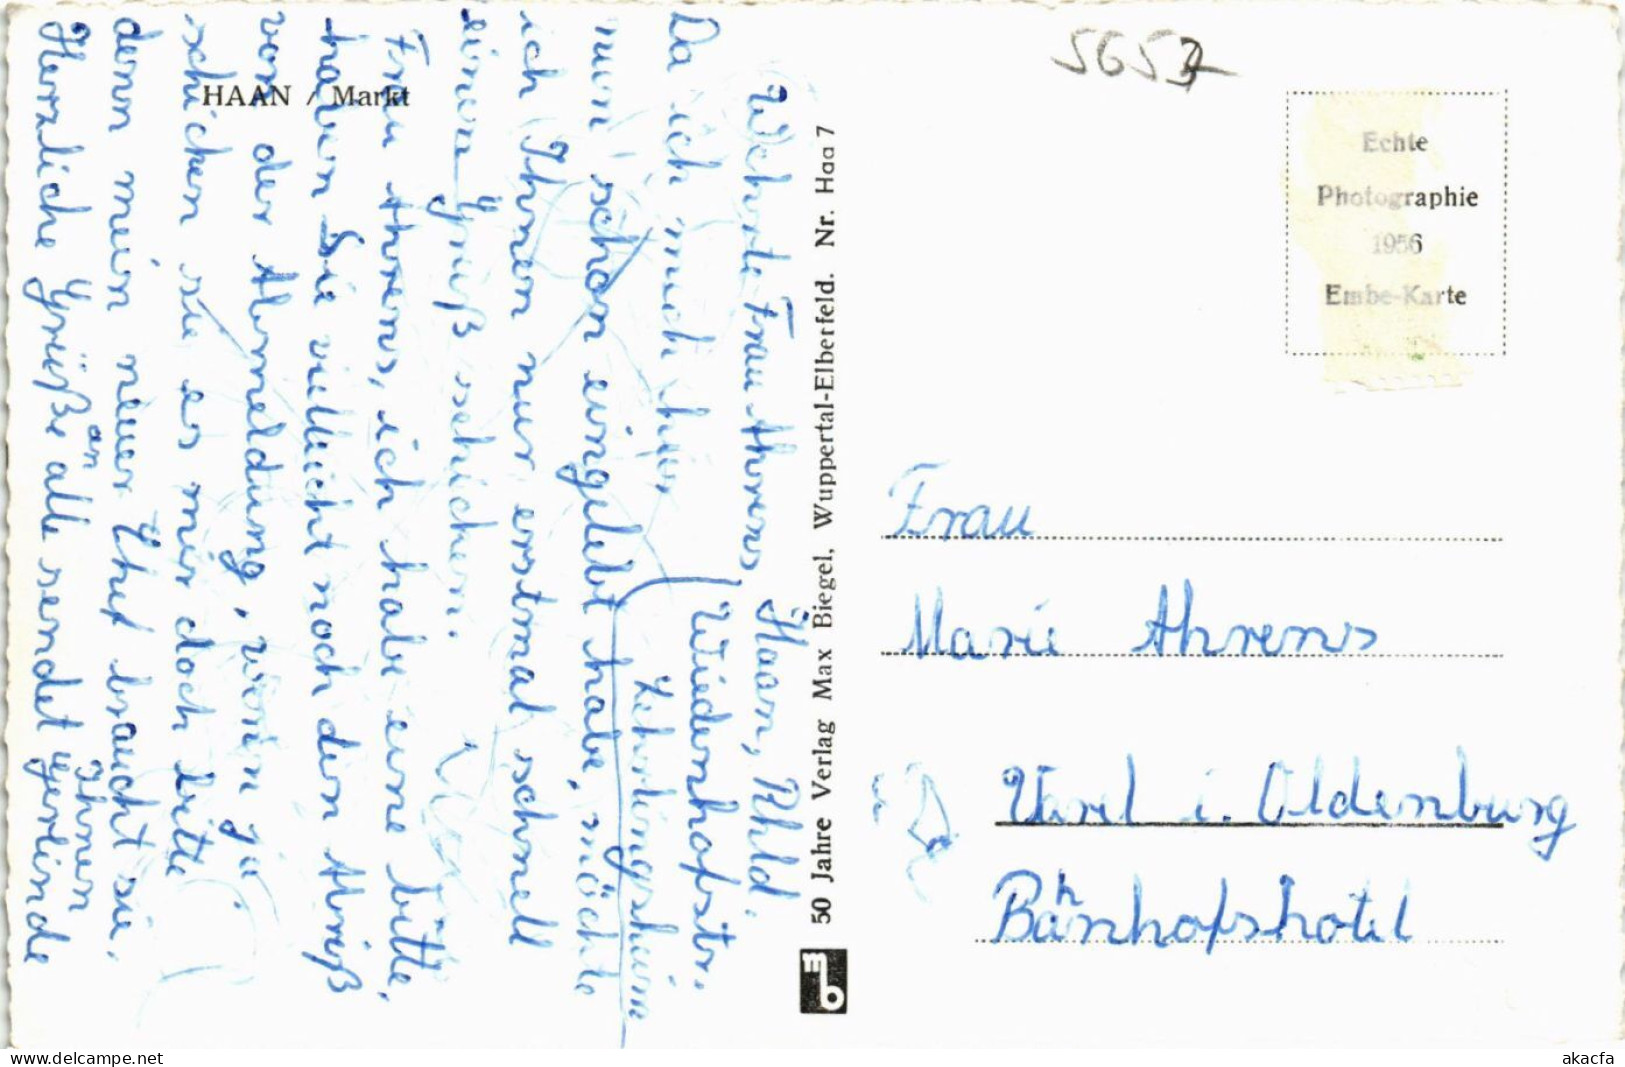 HAAN / Markt
Haan, Rhld.
Wiedenhofstr.
Lehrlingsheim
Wehrte Frau Ahrens
Da ich mich hier
nun schon eingelebt habe, möchte
ich Ihnen nur erstmal schnell
einen Gruß schicken.
Frau Ahrens, ich habe eine bitte,
haben Sie villeicht noch den Abriß
von der Abmeldung, wenn ja
schicken sie es mir doch bitte
denn mein neuer Chef braucht sie.
Herzliche Grüße an alle sendet Ihnen Gerlinde
50 Jahre Verlag Max Biegel, Wuppertal-Elberfeld. Nr. Haa 7
mb
5653
Echte
Photographie
1956
Embe-Karte
Frau
Marie Ahrens
Varel i. Oldenburg
Bahnhofshotel
www.delcampe.net
akacfa